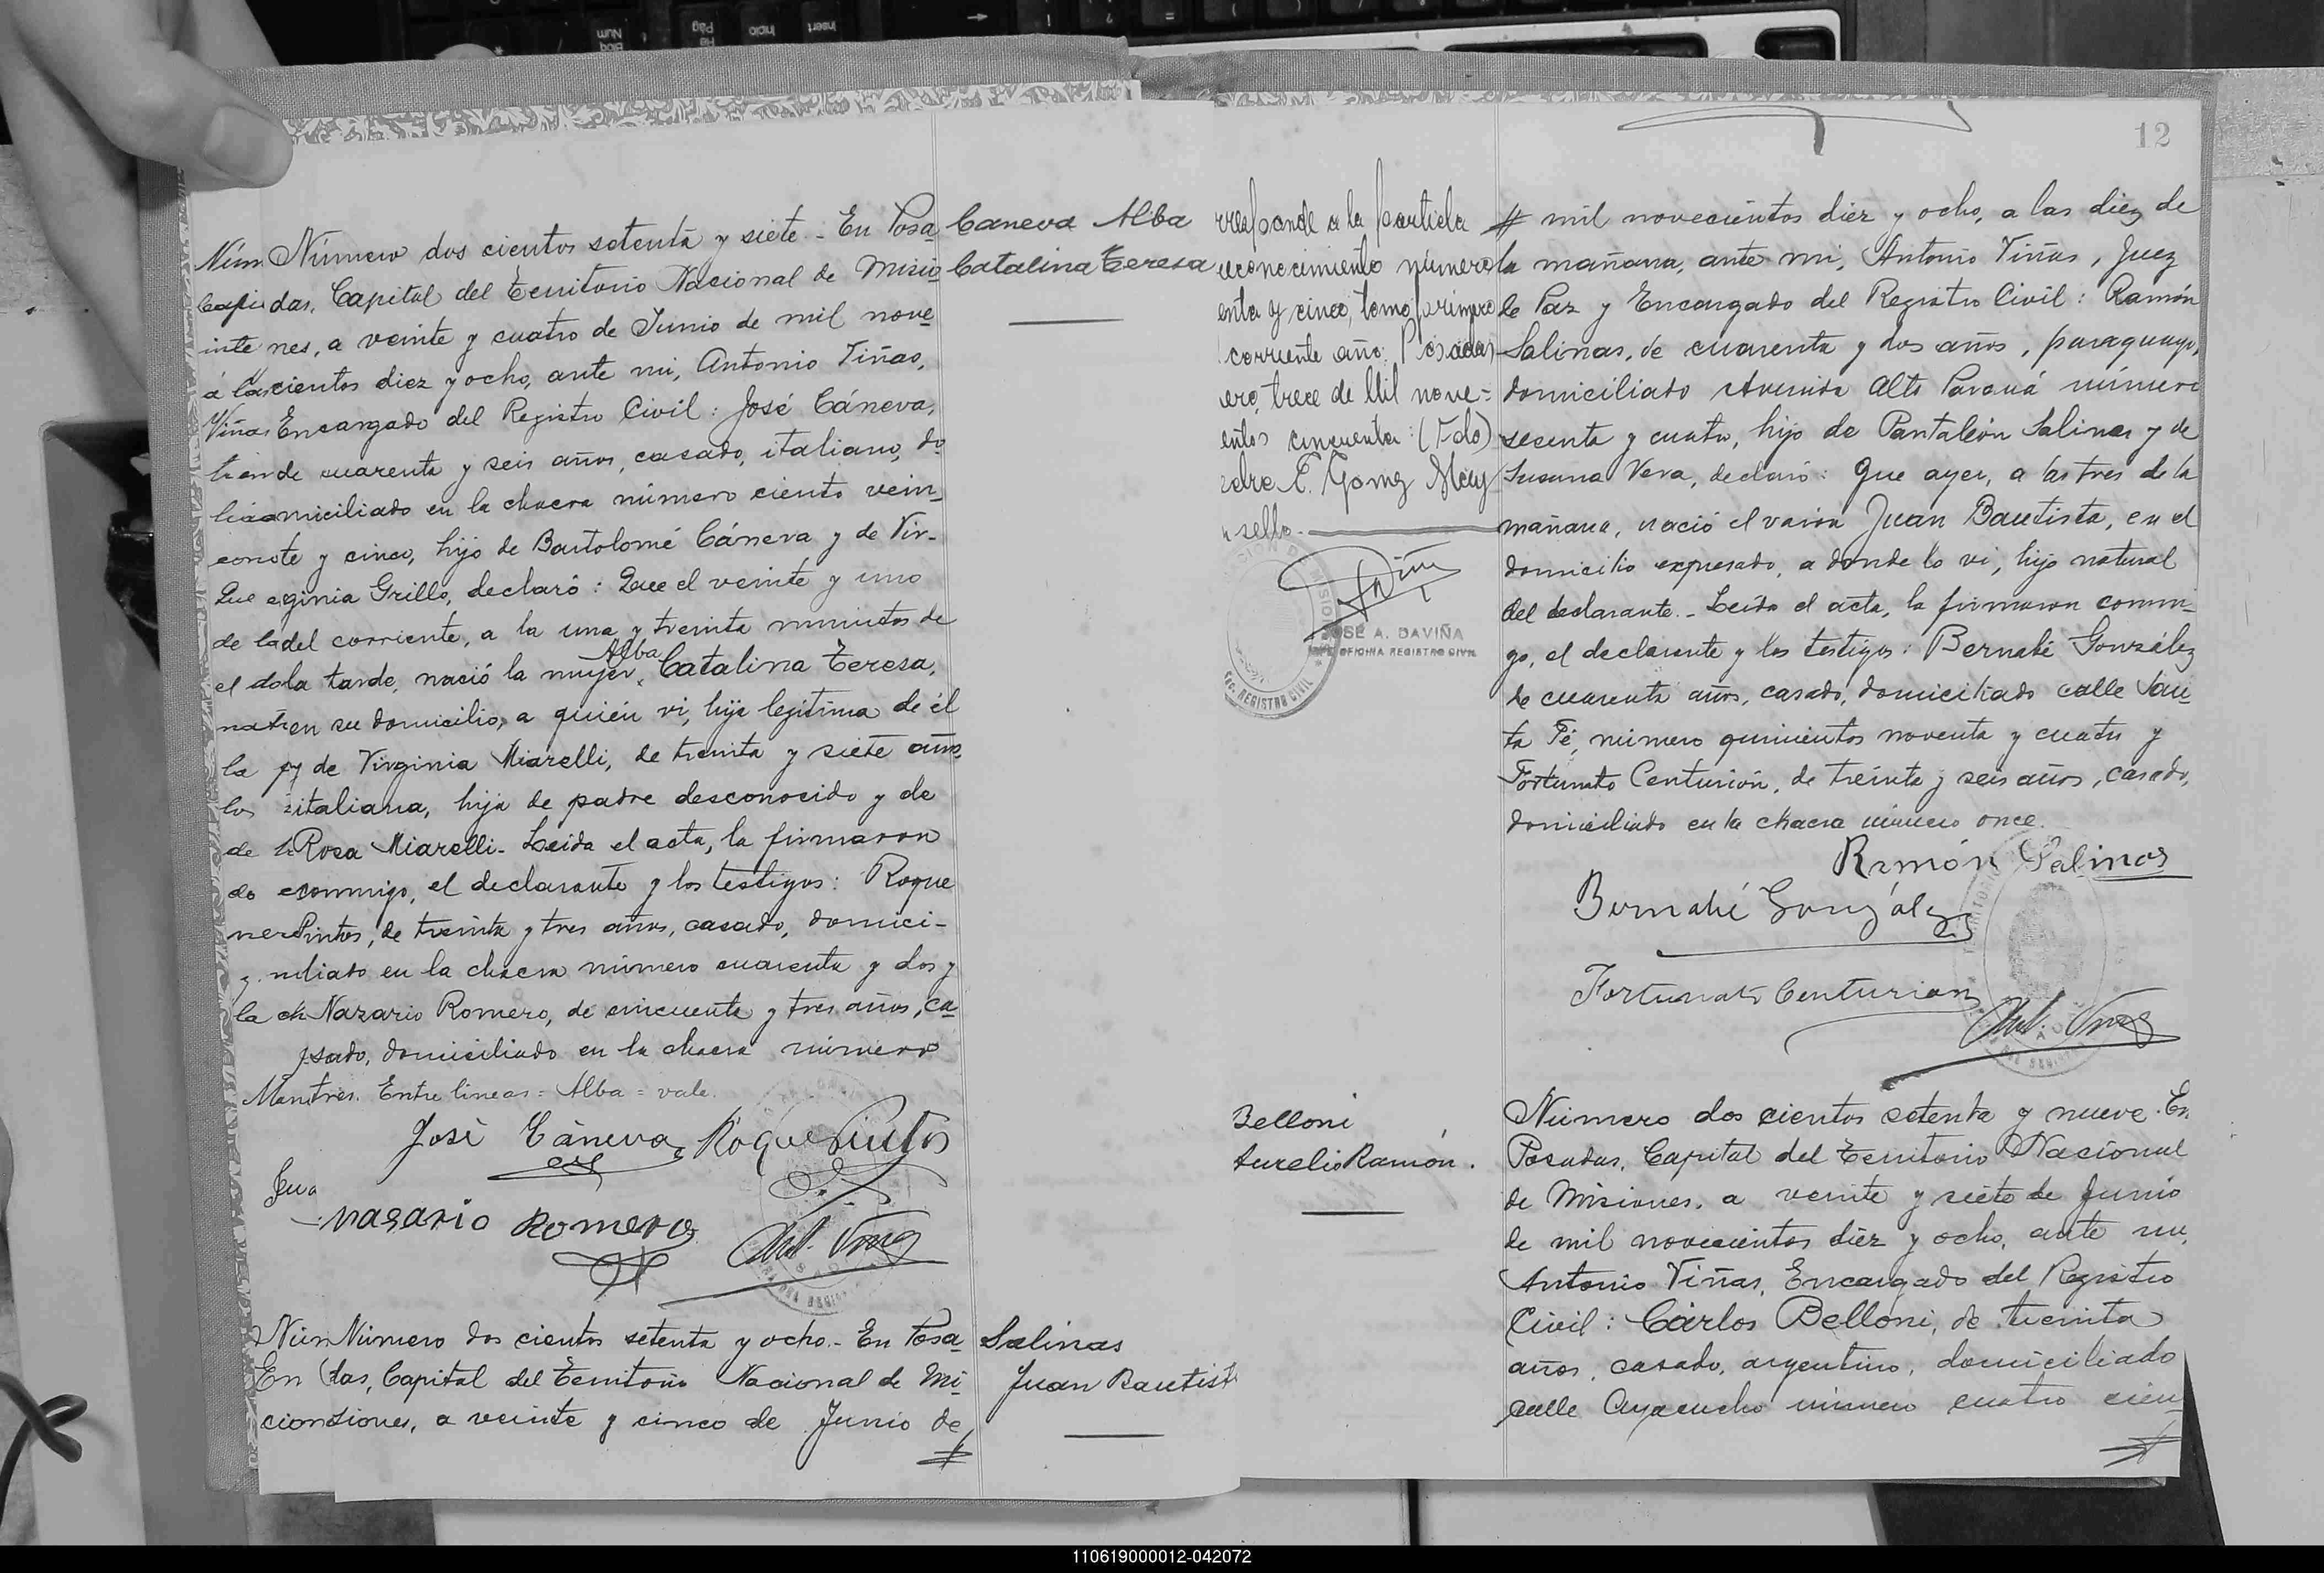 Número dos cientos setenta y siete.- En Posa-
das, Capital del Territorio Nacional de Misio-
nes, a veinte y cuatro de Junio de mil nove-
cientos diez y ocho, ante mi, Antonio Viñas,
Encargado del Registro Civil: José Cáneva,
de cuarenta y seis años, casado, italiano, do-
miciliado en la chacra número ciento vein-
te y cinco, hijo de Bartolomé Cáneva y de Vir-
ginia Grillo, declaró: Que el veinte y uno
del corriente, a la una y treinta minutos de
Alba
la tarde, nació la mujer, Catalina Teresa,
en su domicilio, a quién vi, hija legítima de él
y de Virginia Miarelli, de treinta y siete años,
italiana, hija de padre desconocido y de
Rosa Miarelli.- Leida el acta, la firmaron
conmigo, el declarante y los testigos: Roque
Pintos, de treinta y tres años, casado, domici-
liado en la chacra número cuarenta y dos y
Nazario Romero, de cincuenta y tres años, ca-
sado, domiciliado en la chacra número
tres. Entre lineas = Alba = vale.
José Cáneva Roque Pintos
Nasario Romero
Ant. Viñas
Número dos cientos setenta y ocho.- En Posa-
das, Capital del Territorio Nacional de Mi-
siones, a veinte y cinco de Junio de
#
Caneva Alba
Catalina Teresa
Salinas
Juan Bautist
rresponde a la partida
reconocimiento número
enta y cinco, tomo primero
corriente año. Posadas
ero, trece de Mil nove=
entos cincuenta: (Fdo)
edro E. Gomez
sello.
JOSE A. DAVIÑA
OFICINA REGISTRO CIVIL
REGISTRO CIVIL
Belloni
Aurelio Ramón.
12
# mil novecientos diez y ocho, a las diez de
la mañana, ante mi, Antonio Viñas, Juez
de Paz y Encargado del Registro Civil: Ramón
Salinas, de cuarenta y dos años, paraguayo,
domiciliado Avenida Alto Paraná número
secenta y cuatro, hijo de Pantaleón Salinas y de
Susana Vera, declaró: Que ayer, a las tres de la
mañana, nació el varón Juan Bautista, en el
domicilio expresado, a donde lo vi, hijo natural
del declarante.- Leída el acta, la firmaron conmi-
go, el declarante y los testigos: Bernabé González
de cuarenta años, casado, domiciliado calle San-
ta Fé, número quinientos noventa y cuatro y
Fortunato Centurión, de treinta y seis años, casado,
domiciliado en la chacra número once.
Ramón Salinas
Bernabé González
Fortunato Centurion
Ant. Viñas
Número dos cientos setenta y nueve. En
Posadas, Capital del Territorio Nacional
de Misiones, a veinte y siete de Junio
de mil novecientos diez y ocho, ante mi,
Antonio Viñas, Encargado del Registro
Civil: Cárlos Belloni, de treinta
años, casado, argentino, domiciliado
calle Ayacucho número cuatro cien-
#
110619000012-042072